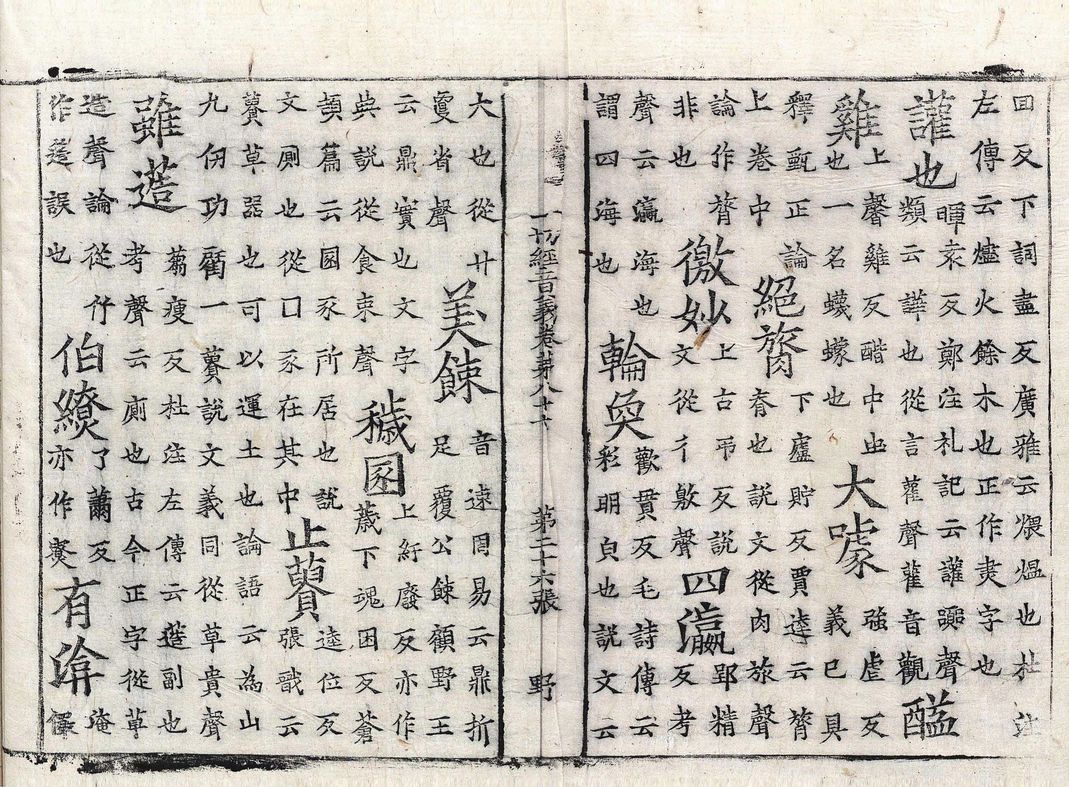 回反下詞盡反廣雅云煨煴也杜註
左傳云燼火餘木也正作㶳字也
讙也
暉袁反鄭注礼記云讙嚻聲
類云譁也從言雚聲雚音觀
醯
雞
上馨雞反醋中虫
也一名蠛蠓也
大噱
強虐反
義已具
釋甄正論
上卷中
絕膂
下虛貯反賈逵云膂
脊也說文從肉旅聲
論作膂
非也
徼妙
上古弔反說
文從彳敫聲
四瀛
郢精
反考
聲云瀛海也
謂四海也
輪奐
歡貫反毛詩傳云
彩明皃也說文云
一切經音義卷第八十六 第二十六張 野
大也從廾
敻省聲
美餗
音速周易云鼎折
足覆公餗顧野王
云鼎實也文字
典說從食束聲
穢圂
上紆廢反亦作
薉下魂困反蒼
頡篇云圂豕所居也說
文厠也從囗豕在其中
止蕢
逵位反
張戩云
蕢草器也可以運土也論語云為山
九仞功虧一蕢說文義同從草貴聲
雖簉
蒭瘦反杜注左傳云簉副也
考聲云廁也古今正字從草
造聲論從竹
作簉誤也
伯繚
了蕭反
亦作
有渰
淹